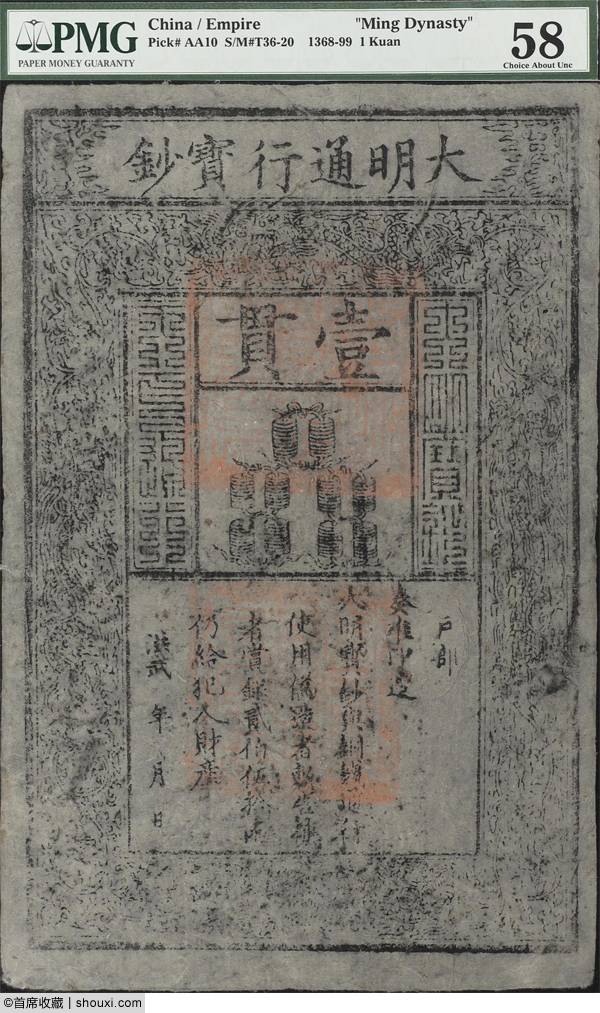 PMG
PAPER MONEY GUARANTY
China / Empire "Ming Dynasty"
Pick# AA10 S/M#T36-20 1368-99 1 Kuan
58
Choice About Unc
大明通行寶鈔
壹貫
大明寶鈔
天下通行
戶部
奏准印造
大明寶鈔與銅錢通行
使用偽造者斬告捕
者賞銀貳伯伍拾兩
仍給犯人財產
洪武 年 月 日
©首席收藏 | shouxi.com